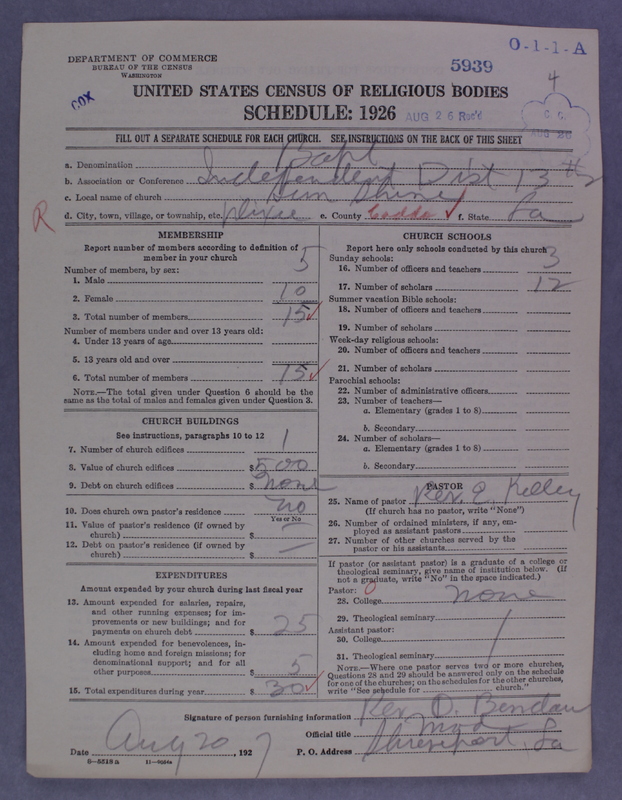 O-1-1-A
DEPARTMENT OF COMMERCE
BUREAU OF THE CENSUS
WASHINGTON
5939
4
COX
UNITED STATES CENSUS OF RELIGIOUS BODIES
SCHEDULE: 1926 AUG 26 Rec'd
C. C.
AUG 26
FILL OUT A SEPARATE SCHEDULE FOR EACH CHURCH. SEE INSTRUCTIONS ON THE BACK OF THIS SHEET
a. Denomination Bapt
b. Association or Conference Independent Dist 13 #2
c. Local name of church Sun Shine
R
d. City, town, village, or township, etc. Dixie e. County Caddo ✓ f. State La
MEMBERSHIP
Report number of members according to definition of
member in your church
Number of members, by sex:
1. Male 5
2. Female 10
3. Total number of members 15 ✓
Number of members under and over 13 years old:
4. Under 13 years of age
5. 13 years old and over
6. Total number of members 15 ✓
NOTE.—The total given under Question 6 should be the
same as the total of males and females given under Question 3.
CHURCH BUILDINGS
See instructions, paragraphs 10 to 12
7. Number of church edifices 1
8. Value of church edifices $500
9. Debt on church edifices $ none
10. Does church own pastor's residence no
Yes or No
11. Value of pastor's residence (if owned by
church) $ —
12. Debt on pastor's residence (if owned by
church) $ —
EXPENDITURES
Amount expended by your church during last fiscal year
13. Amount expended for salaries, repairs,
and other running expenses; for im-
provements or new buildings; and for
payments on church debt $ 25
14. Amount expended for benevolences, in-
cluding home and foreign missions; for
denominational support; and for all
other purposes $ 5
15. Total expenditures during year $ 30 ✓
CHURCH SCHOOLS
Report here only schools conducted by this church
Sunday schools:
16. Number of officers and teachers 3
17. Number of scholars 12
Summer vacation Bible schools:
18. Number of officers and teachers
19. Number of scholars
Week-day religious schools:
20. Number of officers and teachers
21. Number of scholars
Parochial schools:
22. Number of administrative officers
23. Number of teachers—
a. Elementary (grades 1 to 8)
b. Secondary
24. Number of scholars—
a. Elementary (grades 1 to 8)
b. Secondary
PASTOR
25. Name of pastor Rev. E. Kelley
(If church has no pastor, write "None")
26. Number of ordained ministers, if any, em-
ployed as assistant pastors
27. Number of other churches served by the
pastor or his assistants
If pastor (or assistant pastor) is a graduate of a college or
theological seminary, give name of institution below. (If
not a graduate, write "No" in the space indicated.)
Pastor: 0
28. College none
29. Theological seminary
Assistant pastor:
30. College
31. Theological seminary
NOTE.—Where one pastor serves two or more churches,
Questions 28 and 29 should be answered only on the schedule
for one of the churches; on the schedules for the other churches,
write "See schedule for church."
Signature of person furnishing information Rev. D.
Official title Mod
Date Aug 20, 1927 P. O. Address Shreveport, La
8-5518a 11-9064a